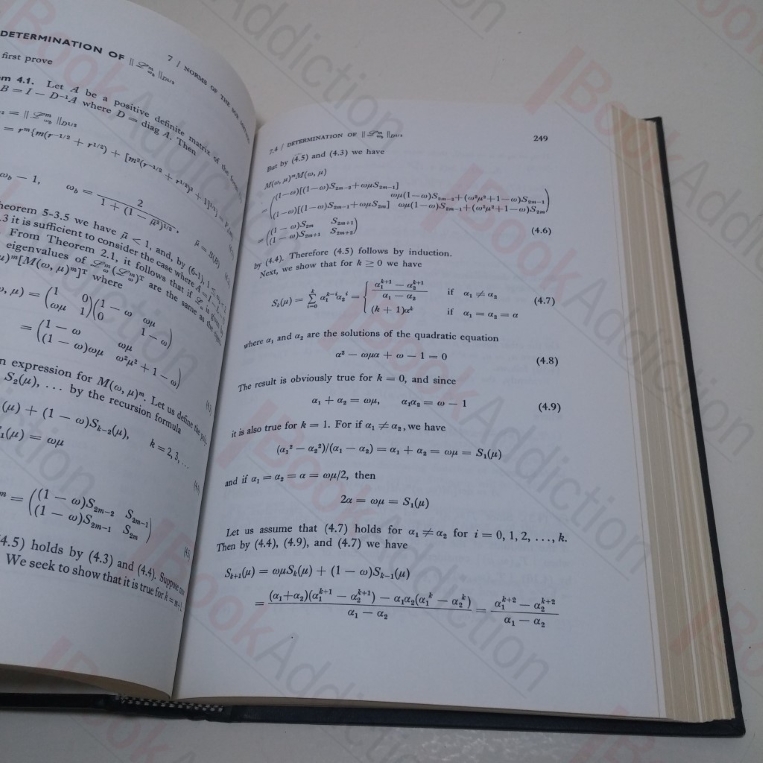 DETERMINATION OF ‖ℒ
7 / NORMS OF THE SOR
first prove
4.1. Let A be a positive definite matrix of the
B = I − D⁻¹A where D = diag A. Then
= rᵐ{m(r⁻¹ᐟ² + r¹ᐟ²) + [m²(r⁻¹ᐟ² + r¹ᐟ²)² + 1]¹ᐟ²}
ω_b − 1, ω_b = 2 / (1 + (1 − μ̄²)¹ᐟ²), μ̄ = S(B)
5-3.5 we have μ̄ < 1, and, by
it is sufficient to consider the case where A
From Theorem 2.1, it follows that if
eigenvalues of are the same as the
[M(ω, μ)ᵐ]ᵀ where
μ) = (1 0; ωμ 1)(1 − ω ωμ; 0 1 − ω)
= (1 − ω ωμ; (1 − ω)ωμ ω²μ² + 1 − ω)
expression for M(ω, μ)ᵐ. Let us define the
S₂(μ), . . . by the recursion formula
(μ) + (1 − ω)Sₖ₋₂(μ), k = 2, 3, . . .
₁(μ) = ωμ
= ((1 − ω)S₂ₘ₋₂ S₂ₘ₋₁; (1 − ω)S₂ₘ₋₁ S₂ₘ)
4.5) holds by (4.3) and (4.4). Suppose
We seek to show that it is true for k =
7.4 / DETERMINATION OF ‖ℒᵐ‖ 249
But by (4.5) and (4.3) we have
M(ω, μ)ᵐM(ω, μ)
= ((1−ω)[(1−ω)S₂ₘ₋₂ + ωμS₂ₘ₋₁] ωμ(1−ω)S₂ₘ₋₂+(ω²μ²+1−ω)S₂ₘ₋₁
(1−ω)[(1−ω)S₂ₘ₋₁ + ωμS₂ₘ] ωμ(1−ω)S₂ₘ₋₁+(ω²μ²+1−ω)S₂ₘ)
= ((1 − ω)S₂ₘ S₂ₘ₊₁
(1 − ω)S₂ₘ₊₁ S₂ₘ₊₂) (4.6)
by (4.4). Therefore (4.5) follows by induction.
Next, we show that for k ≥ 0 we have
Sₖ(μ) = Σᵢ₌₀ᵏ α₁ᵏ⁻ⁱα₂ⁱ = { (α₁ᵏ⁺¹ − α₂ᵏ⁺¹)/(α₁ − α₂) if α₁ ≠ α₂ (4.7)
(k + 1)αᵏ if α₁ = α₂ = α
where α₁ and α₂ are the solutions of the quadratic equation
α² − ωμα + ω − 1 = 0 (4.8)
The result is obviously true for k = 0, and since
α₁ + α₂ = ωμ, α₁α₂ = ω − 1 (4.9)
it is also true for k = 1. For if α₁ ≠ α₂, we have
(α₁² − α₂²)/(α₁ − α₂) = α₁ + α₂ = ωμ = S₁(μ)
and if α₁ = α₂ = α = ωμ/2, then
2α = ωμ = S₁(μ)
Let us assume that (4.7) holds for α₁ ≠ α₂ for i = 0, 1, 2, . . . , k.
Then by (4.4), (4.9), and (4.7) we have
Sₖ₊₁(μ) = ωμSₖ(μ) + (1 − ω)Sₖ₋₁(μ)
= ((α₁+α₂)(α₁ᵏ⁺¹ − α₂ᵏ⁺¹) − α₁α₂(α₁ᵏ − α₂ᵏ))/(α₁ − α₂) = (α₁ᵏ⁺² − α₂ᵏ⁺²)/(α₁ − α₂)
BookAddiction